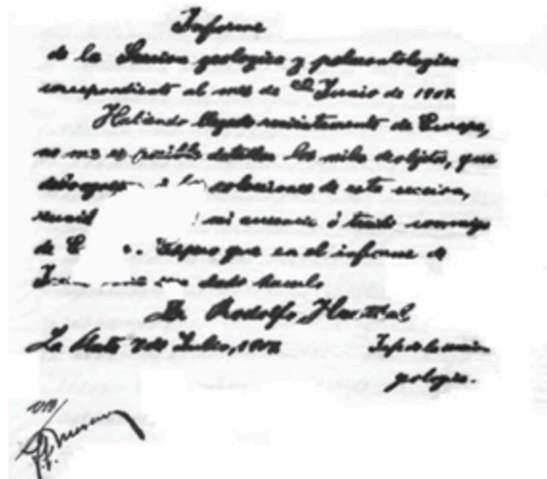 Informe
de la Seccion geologica y paleontologica
correspondiente al mes de Junio de 1907
Habiendo llegado recientemente de Europa,
no me es posible detallar los miles de objetos, que
colecciones de esta seccion,
mi ausencia ó traido conmigo
de Espero que en el informe de
dado hacerlo
Dr Rodolfo Hauthal
La Plata Julio, 1907. Jefe de la seccion
geologia.